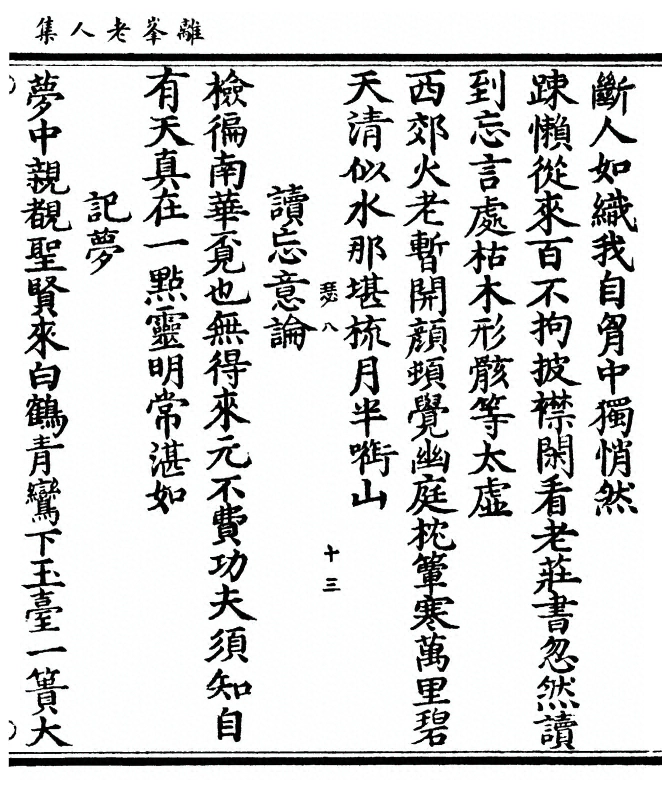 離峯老人集
斷人如織我自胷中獨悄然
踈懶從來百不拘披襟閑看老莊書忽然讀
到忘言處枯木形骸等太虛
西郊火老暫開顔頓覺幽庭枕簟寒萬里碧
天清似水那堪梳月半㘅山
瑟八
十三
讀忘意論
檢徧南華覔也無得來元不費功夫須知自
有天真在一點靈明常湛如
記夢
夢中親覩聖賢來白鶴青鸞下玉臺一簣大